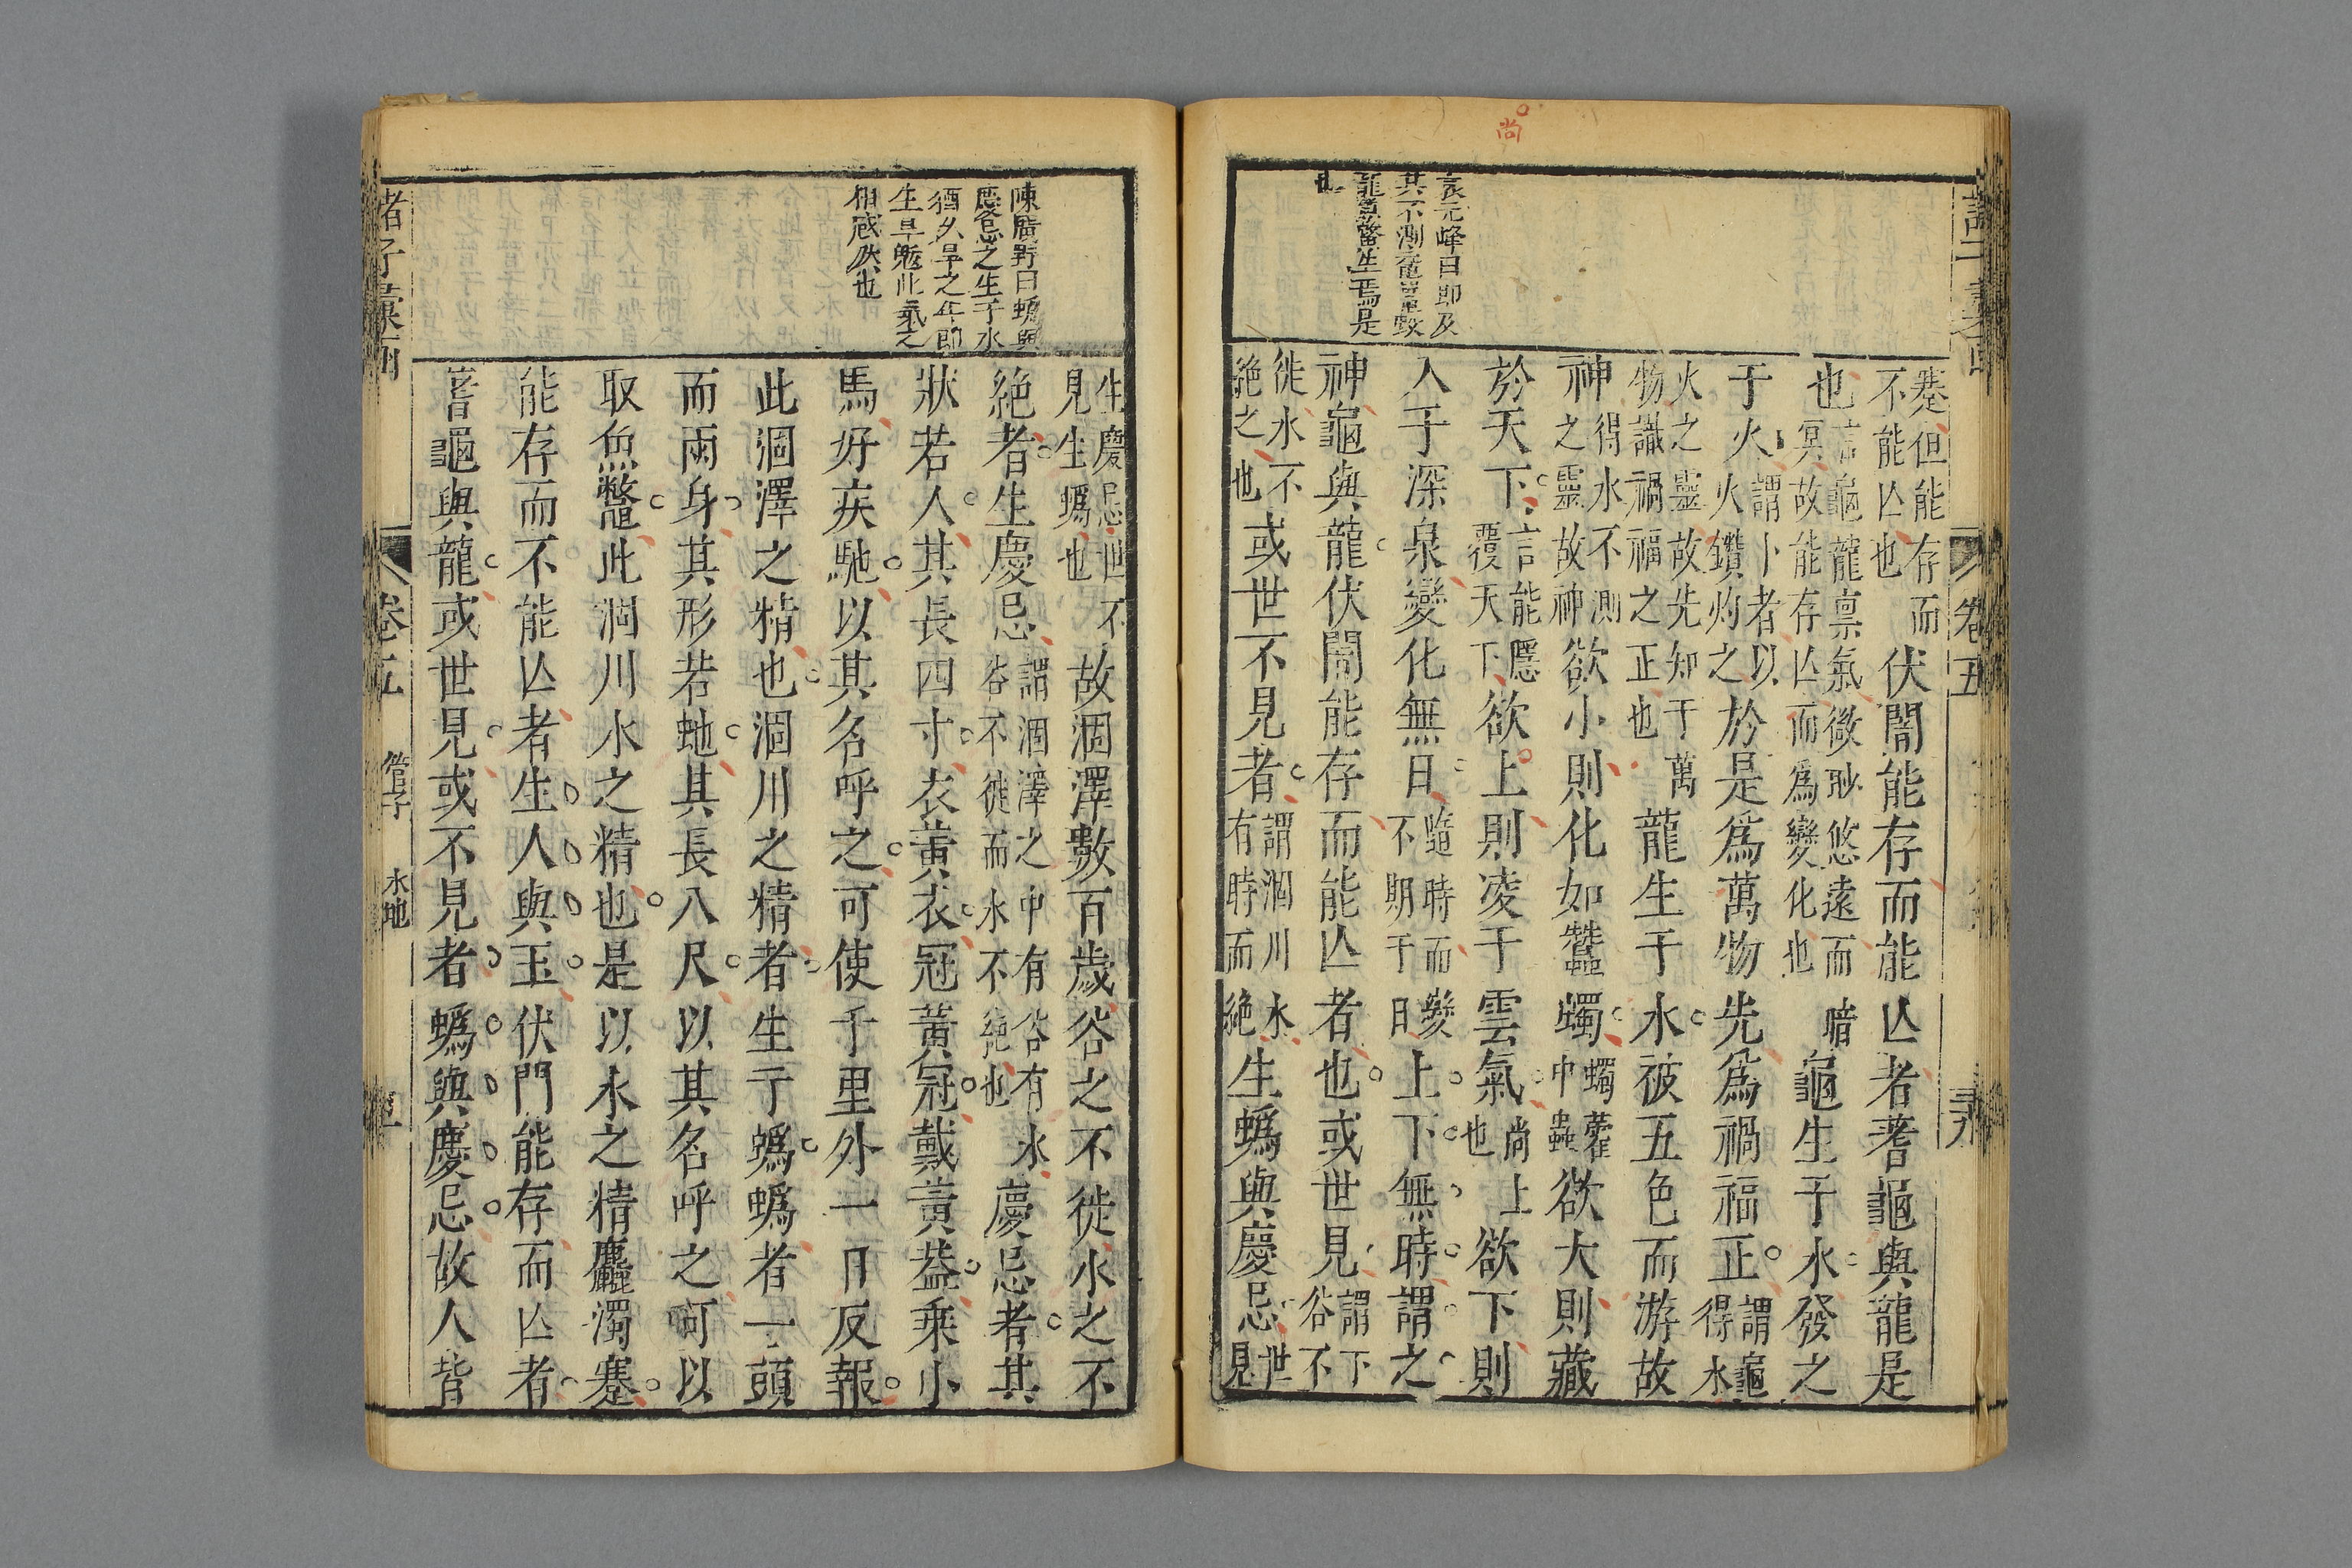 尚
袁元峰曰即及
其不測黿鼉蛟
龍魚鱉生焉是
也
諸子彙函 卷五
塞但能存而不能亾也伏闇能存而能亾者蓍龜與龍是
也言龜龍禀氣微眇悠遠而暗冥故能存亾而為變化也龜生于水發之
于火謂卜者以火鑽灼之於是為萬物先為禍福正謂龜得水
火之靈故先知于萬物識禍福之正也龍生于水被五色而游故
神得水不測之靈故神欲小則化如蠶蠋蠋藿中蟲欲大則藏
於天下言能隱覆天下欲上則凌于雲氣尚上也欲下則
入于深泉變化無日隨時而變不期于日上下無時謂之
神龜與龍伏闇能存而能亾者也或世見謂下谷不
徙水不絶之也或世不見者謂涸川水有時而絶生蟡與慶忌世見
陳廣野曰蟡與
慶忌之生于水
猶久旱之年即
生旱魃此氣之
相感然也
生慶忌世不見生蟡也故涸澤數百歲谷之不徙水之不
絶者生慶忌謂涸澤之中有谷有水谷不徙而水不絶也慶忌者其
狀若人其長四寸衣黃衣冠黃冠戴黃葢乘小
馬好疾馳以其名呼之可使千里外一日反報
此涸澤之精也涸川之精者生于蟡蟡者一頭
而兩身其形若虵其長八尺以其名呼之可以
取魚鱉此涸川水之精也是以水之精麤濁蹇
能存而不能亾者生人與玉伏闇能存而亾者
蓍龜與龍或世見或不見者蟡與慶忌故人皆
諸子彙函 卷五 管子 水地